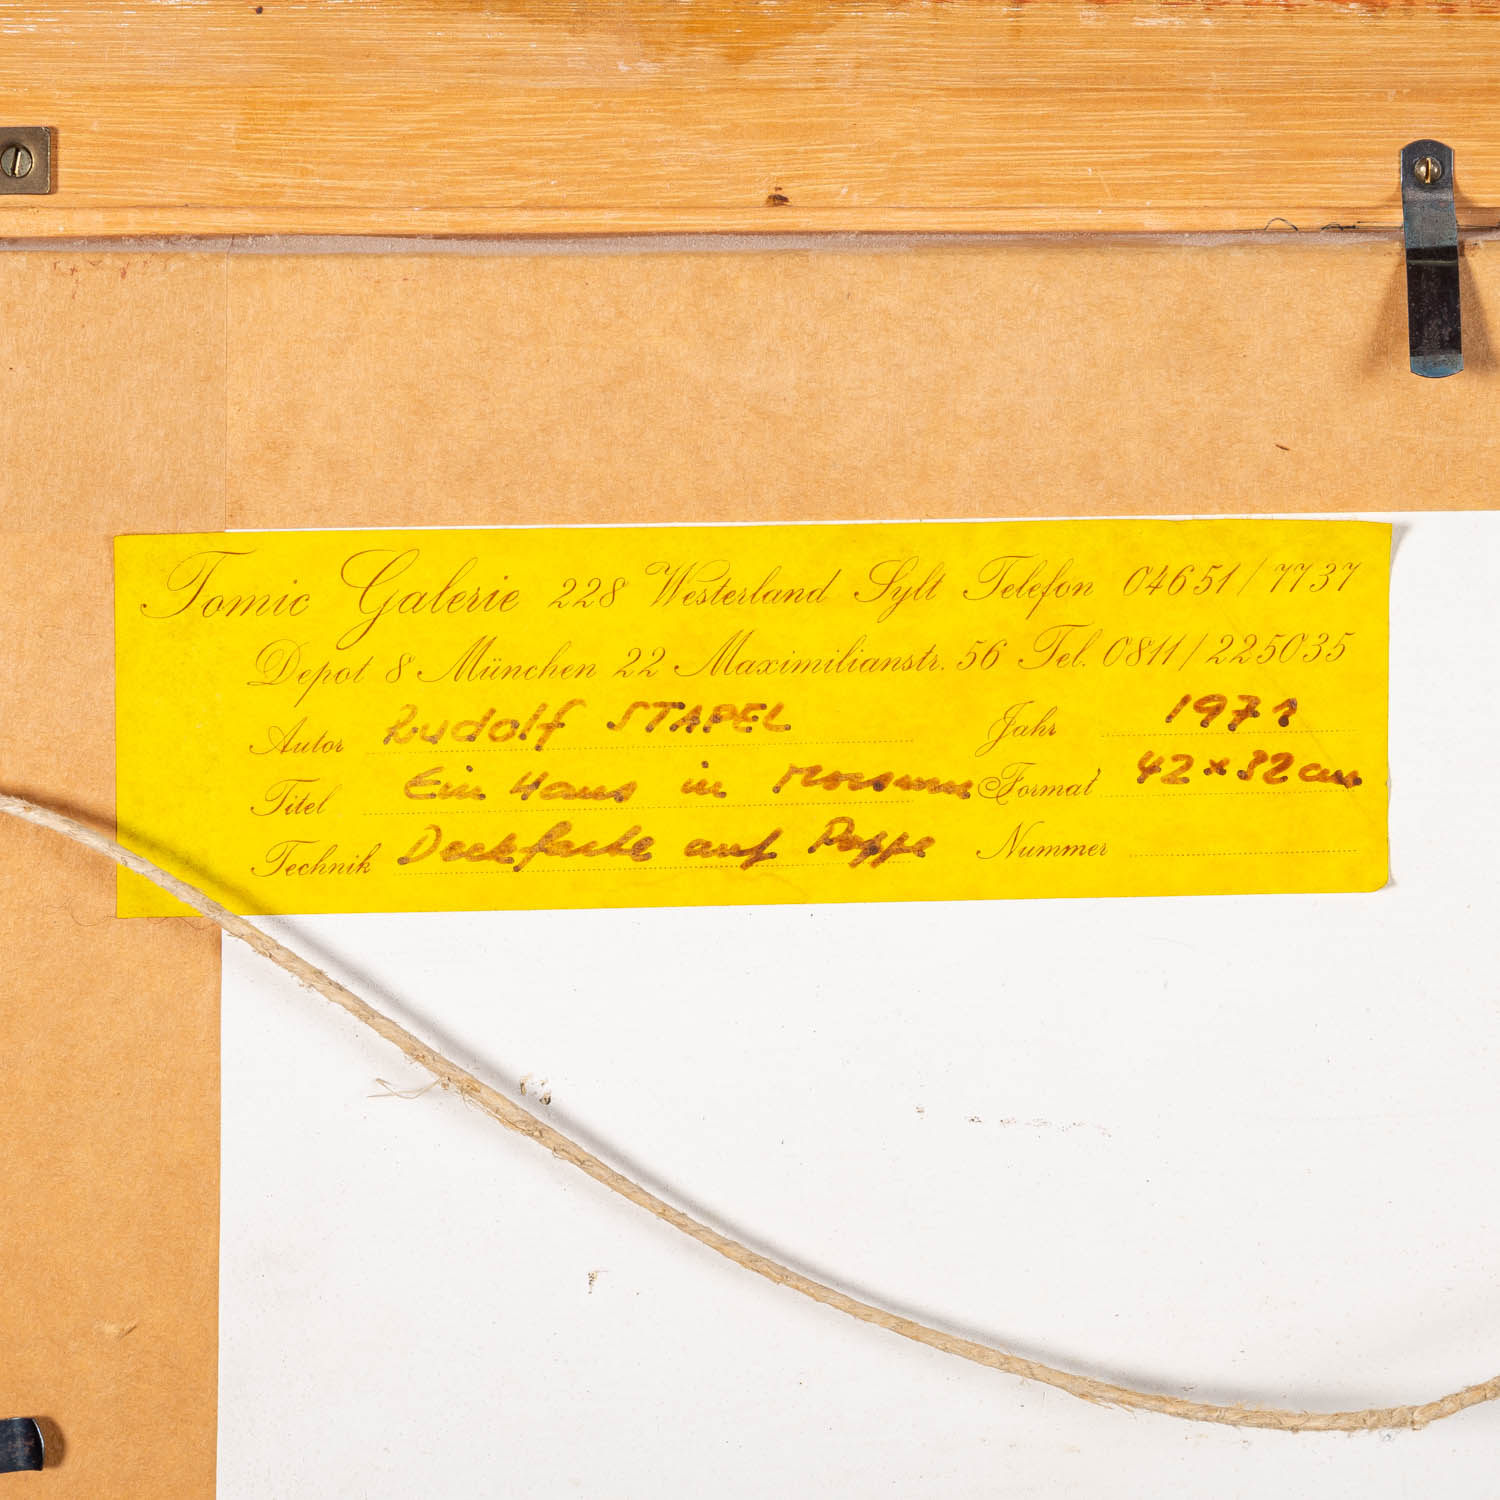 Tomic Galerie 228 Westerland Sylt Telefon 04651/7737
Depot 8 München 22 Maximilianstr. 56 Tel. 0811/225035
Autor Rudolf STAPEL Jahr 1971
Titel Ein Haus in Morsum Format 42 x 32 cm
Technik Deckfarbe auf Pappe Nummer